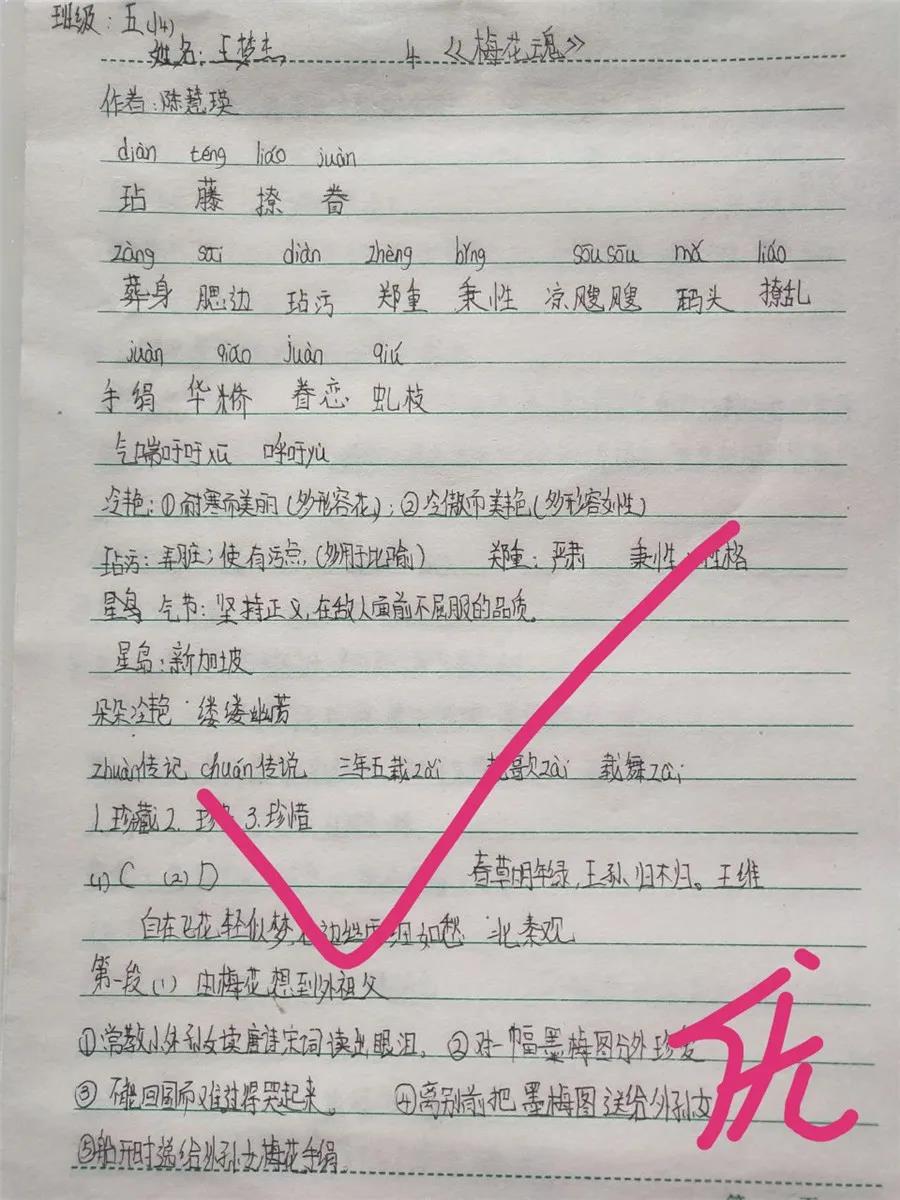 班级：五(14)
姓名：王梦杰 4 《梅花魂》
作者：陈慧瑛
diàn téng liáo juàn
玷 藤 撩 眷
zàng sāi diàn zhèng bǐng sōu sōu mǎ liáo
葬身 腮边 玷污 郑重 秉性 凉飕飕 码头 撩乱
juàn qiáo juàn qiú
手绢 华桥 眷恋 虬枝
气喘吁吁xū 呼吁yù
冷艳：①耐寒而美丽(多形容花)；②冷傲而美艳(多形容女性)
玷污：弄脏；使有污点(多用于比喻) 郑重：严肃 秉性：性格
星鸟 气节：坚持正义，在敌人面前不屈服的品质。
星岛：新加坡
朵朵冷艳 缕缕幽芳
zhuàn传记 chuán传说 三年五载zǎi 载歌zài 载舞zài
1.珍藏 2.珍 3.珍惜
(1)C (2)D 春草明年绿，王孙归不归。王维
自在飞花轻似梦，无边丝雨细如愁 北 秦观
第一段(1) 由梅花想到外祖父
①常教小外孙女读唐诗宋词读出眼泪。 ②对一幅墨梅图分外珍爱
③不能回国而难过得哭起来。 ④离别前把墨梅图送给外孙女
⑤船开时递给外孙女梅花手绢。
优